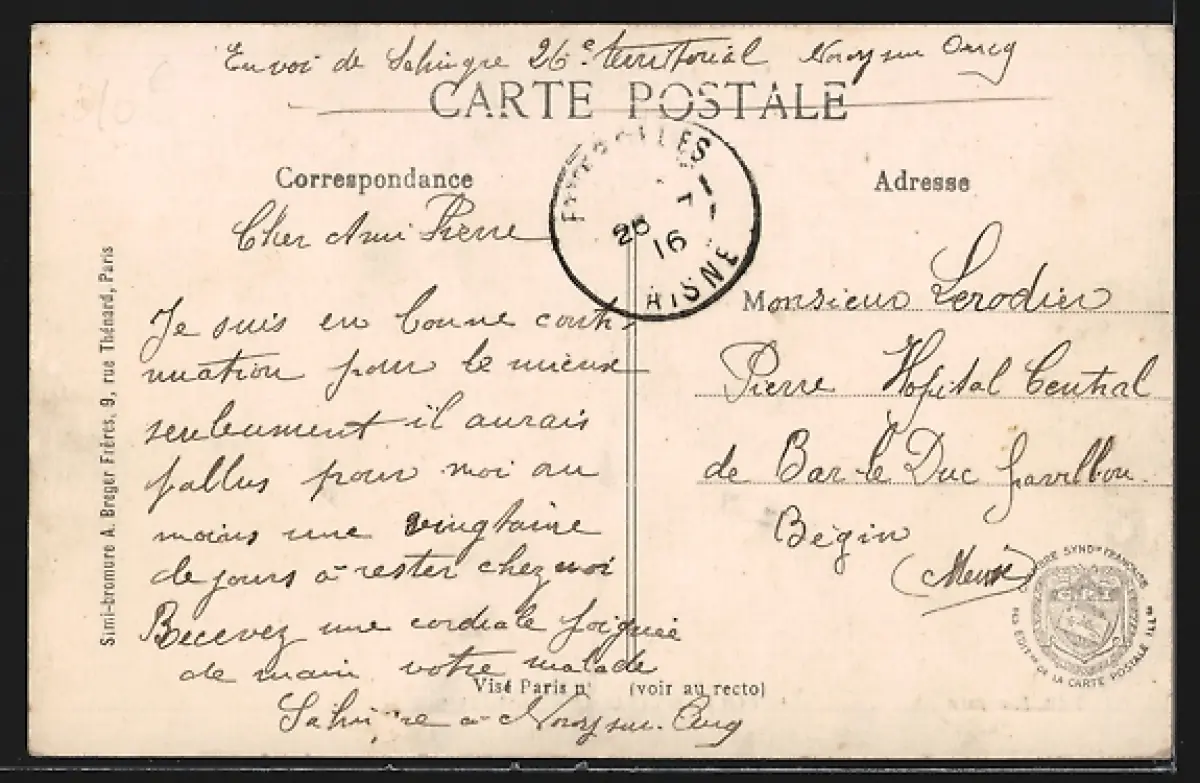 Envoi de Sahingre 26e territorial Noroy sur Ourcq
CARTE POSTALE
Correspondance
Cher Ami Pierre
Je suis en bonne conti-
nuation pour le mieux
seulement il aurais
fallus pour moi au
moins une vingtaine
de jours a rester chez moi
Recevez une cordiale poignée
de main votre malade
a Noroy sur Ourcq
Visé Paris n° (voir au recto)
26 7 16
AISNE
Adresse
Monsieur Lerodier
Pierre Hopital Central
de Bar-le Duc pavillon
Bégin
(Meuse)
Simi-bromure A. Breger Frères, 9, rue Thénard, Paris
SYNDle FRANÇAISE
DE LA CARTE POSTALE ILLée